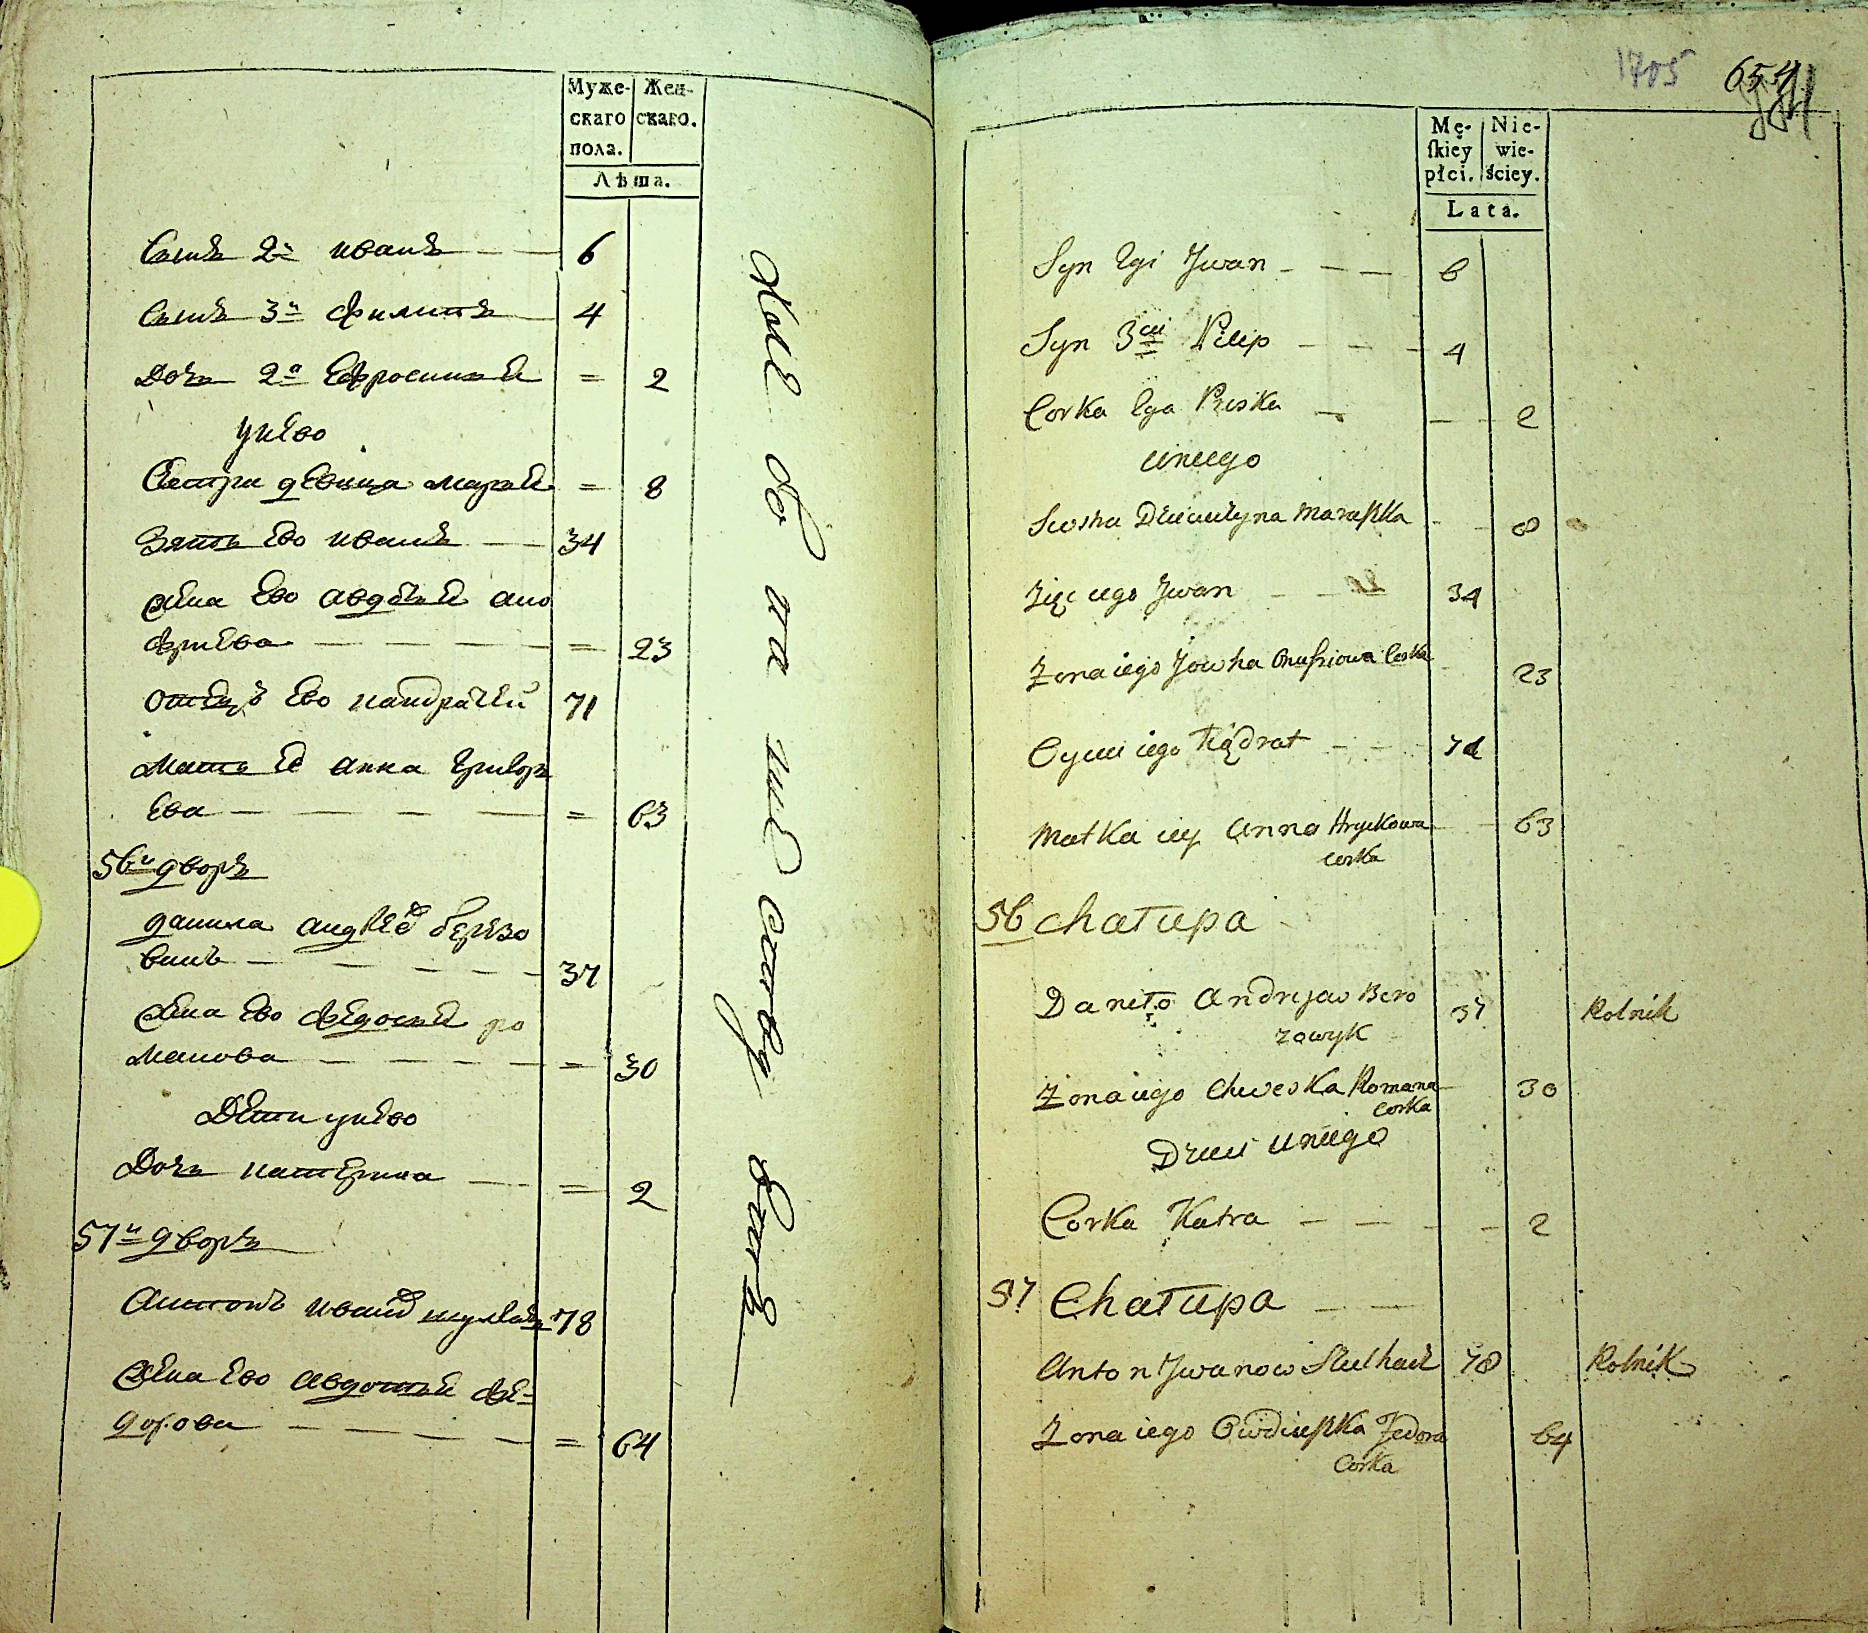 Муже-
скаго
пола.
Жен-
скаго.
Лѣта.
Сынъ 2й иванъ 6
Сынъ 3й филипъ 4
Дочь 2я Ефросинья = 2
унево
Сестра девица марья = 8
Зять ево иванъ 34
жена ево авдотья ано
фриева = 23
отецъ ево кандратей 71
Мать ее анна григорь
ева = 63
56й дворъ
данила андреев березо
викъ 37
жена ево федосья ро
манова = 30
Дети унево
Дочь катерина = 2
57й дворъ
Антонъ иванов 78
жена ево авдотья фе=
дорова = 64
1705 654
Mę-
ſkiey
płci.
Nie-
wie-
ściey.
Lata.
Syn 2gi Jwan 6
Syn 3ci Pilip 4
Corka 2ga Pruska 2
uniego
Siostra Dziewczyna Maraſka 8
Zięć iego Jwan 34
Żona iego Jowha Onufriowa Corka 23
Oyciec iego Kądrat 71
Matka iey Anna Hryckowa 63
corka
56 chałupa
Daniło Andrejow Bero 37 Rolnik
zowyk
Żona iego Chweska Romana 30
Corka
Dzieci uniego
Corka Katra 2
57 Chałupa
Anton Jwanow 78 Rolnik
Żona iego Owdieſka Fedora 64
Corka